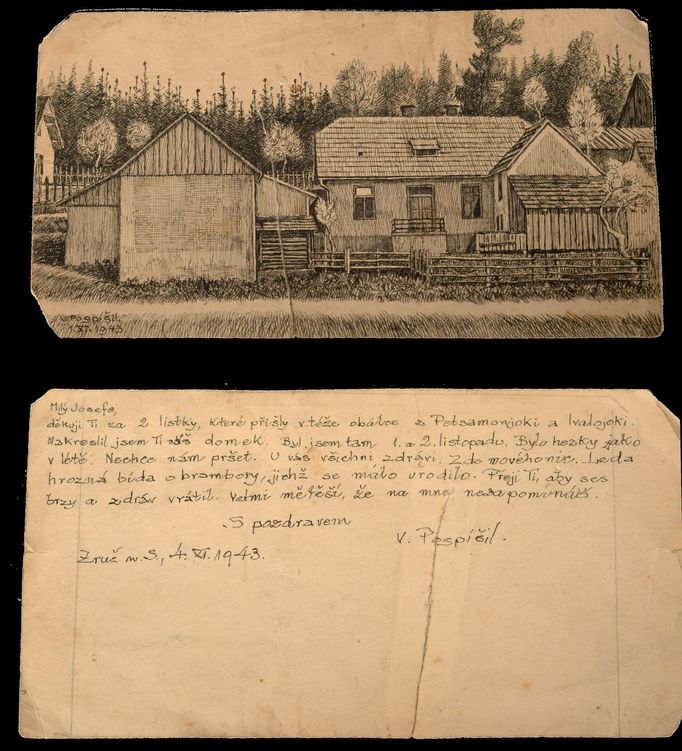 V. Pospíšil
1.XI.1943
Milý Josefe,
děkuji Ti za 2 lístky, které přišly v téže obálce z Petsamonjoki a Ivalojoki.
Nakreslil jsem Ti váš domek. Byl jsem tam 1. a 2. listopadu. Bylo hezky jako
v létě. Nechce nám pršet. U vás všichni zdrávi. Zde nového nic. Leda
hrozná bída o brambory, jichž se málo urodilo. Přeji Ti, aby ses
brzy a zdráv vrátil. Velmi mě těší, že na mne nezapomínáš.
S pozdravem
V. Pospíšil.
Zruč n. S., 4. XI. 1943.